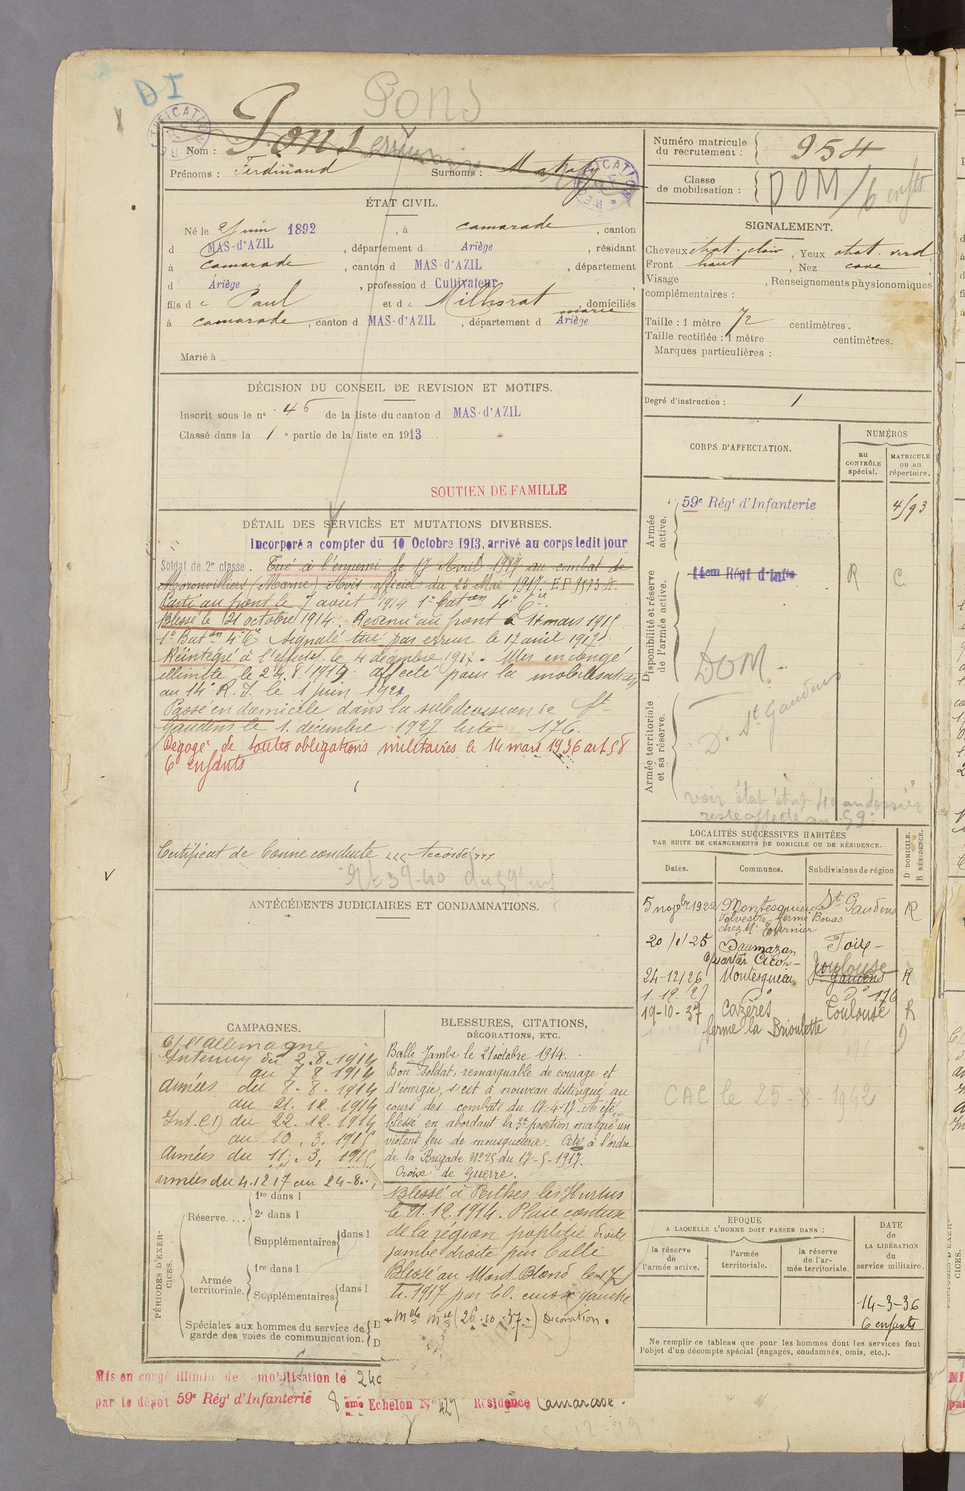 DI
Pons
Nom : Pons
Prénoms : Ferdinand Surnoms :
ÉTAT CIVIL.
Né le 2 juin 1892, à camarade, canton
d MAS-d'AZIL, département d Ariège, résidant
à camarade, canton d MAS-d'AZIL, département
d Ariège, profession d Cultivateur
fils d e Paul et d e Milhorat marie, domiciliés
à camarade, canton d MAS-d'AZIL, département d Ariège
Marié à
DÉCISION DU CONSEIL DE REVISION ET MOTIFS.
Inscrit sous le n° 45 de la liste du canton d MAS-d'AZIL
Classé dans la 1e partie de la liste en 1913
SOUTIEN DE FAMILLE
DÉTAIL DES SERVICES ET MUTATIONS DIVERSES.
Incorporé à compter du 10 Octobre 1913, arrivé au corps ledit jour
Soldat de 2e classe. Tué à l'ennemi le 17 Avril 1917 au combat de
(Marne) Avis officiel du 25 Mai 1917.
Parti au front le 7 août 1914 1er Baton 4e Cie
Blessé le 21 octobre 1914. Revenu au front le 11 mars 1915
1er Baton 4e Cie signalé tué par erreur le 17 avril 1917
Réintégré à l'effectif le 4 décembre 1917. Mis en congé
illimité le 24.8.1919 affecté pour la mobilisation
au 14e R.I. le 1 juin 1921
Passé en domicile dans la subdivision de St
Gaudens le 1. décembre 1927 liste 176.
Dégagé de toutes obligations militaires le 14 mars 1936 art 58
6 enfants
Certificat de bonne conduite "accordé"
ANTÉCÉDENTS JUDICIAIRES ET CONDAMNATIONS.
CAMPAGNES.
C/ l'Allemagne
Intérieur du 2.8.1914
au 7 8 1914
Armées du 8.8.1914
au 21.12.1914
Int. du 22.12.1914
au 10.3.1915
Armées du 11.3.1915
armées du 4.12 17 au 24-8.
PÉRIODES D'EXERCICES.
Réserve....
1re dans l
2e dans l
Supplémentaires dans l
Armée territoriale.
1re dans l
Supplémentaires dans l
Spéciales aux hommes du service de garde des voies de communication.
BLESSURES, CITATIONS,
DÉCORATIONS, ETC.
Balle Jambe le 21 octobre 1914.
Bon soldat, remarquable de courage et
d'énergie, s'est à nouveau distingué au
cours des combats du 17-4-17. A été
blessé en abordant la 3e position malgré un
violent feu de mousqueterie. Cité à l'ordre
de la Brigade N°25 du 17-5-1917.
Croix de Guerre.
Blessé à Perthes les Hurlus
le 21.12.1914. Plaie contuse
de la région poplitée droite
jambe droite par balle
Blessé au Mont Blond le 17
4.1917 par E.O. cuisse gauche
Mle Mre (26-10-37) Décoration.
Mis en congé illimité de mobilisation le 24
par le dépôt 59e Régt d'Infanterie 8 ème Echelon N° 427 Résidence Camarade.
Numéro matricule du recrutement : 954
Classe de mobilisation : DOM / 6 enfts
SIGNALEMENT.
Cheveux chat. clair, Yeux chat. verd
Front haut, Nez cave
Visage, Renseignements physionomiques
complémentaires :
Taille : 1 mètre 72 centimètres.
Taille rectifiée : 1 mètre centimètres.
Marques particulières :
Degré d'instruction : 1
CORPS D'AFFECTATION.
NUMÉROS
au CONTRÔLE spécial.
MATRICULE ou au répertoire.
Armée active.
59e Régt d'Infanterie 4193
Disponibilité et réserve de l'armée active.
14em Régt d'Infie R C
DOM.
Armée territoriale et sa réserve.
D. St Gaudens
LOCALITÉS SUCCESSIVES HABITÉES
PAR SUITE DE CHANGEMENTS DE DOMICILE OU DE RÉSIDENCE.
Dates. Communes. Subdivisions de région D DOMICILE. R RÉSIDENCE.
5 novbre 1922 Montesquieu St Gaudens R
Volvestre ferme Bouas
chez Mr
20/1/25 Daumazan Foix
24-12/26 Montesquieu Toulouse St Gaudens R
1.12.27 do do 176
19-10-37 Cazères Toulouse R
ferme la Brioulette D
CAC le 25-8-1942
EPOQUE
A LAQUELLE L'HOMME DOIT PASSER DANS :
la réserve de l'armée active.
l'armée territoriale.
la réserve de l'armée territoriale.
DATE de LA LIBÉRATION du service militaire.
14-3-36
6 enfants
Ne remplir ce tableau que pour les hommes dont les services font
l'objet d'un décompte spécial (engagés, condamnés, omis, etc.).